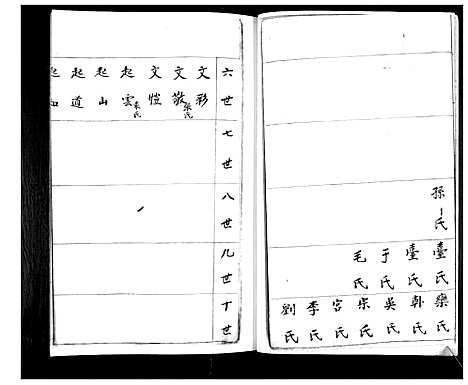 孫氏
臺氏
臺氏
于氏
毛氏
欒氏
韩氏
吳氏
宋氏
宫氏
李氏
劉氏
六世
文彩
文敬 張氏
文愷
起雲 袁氏
起山
起道
七世
八世
九世
十世